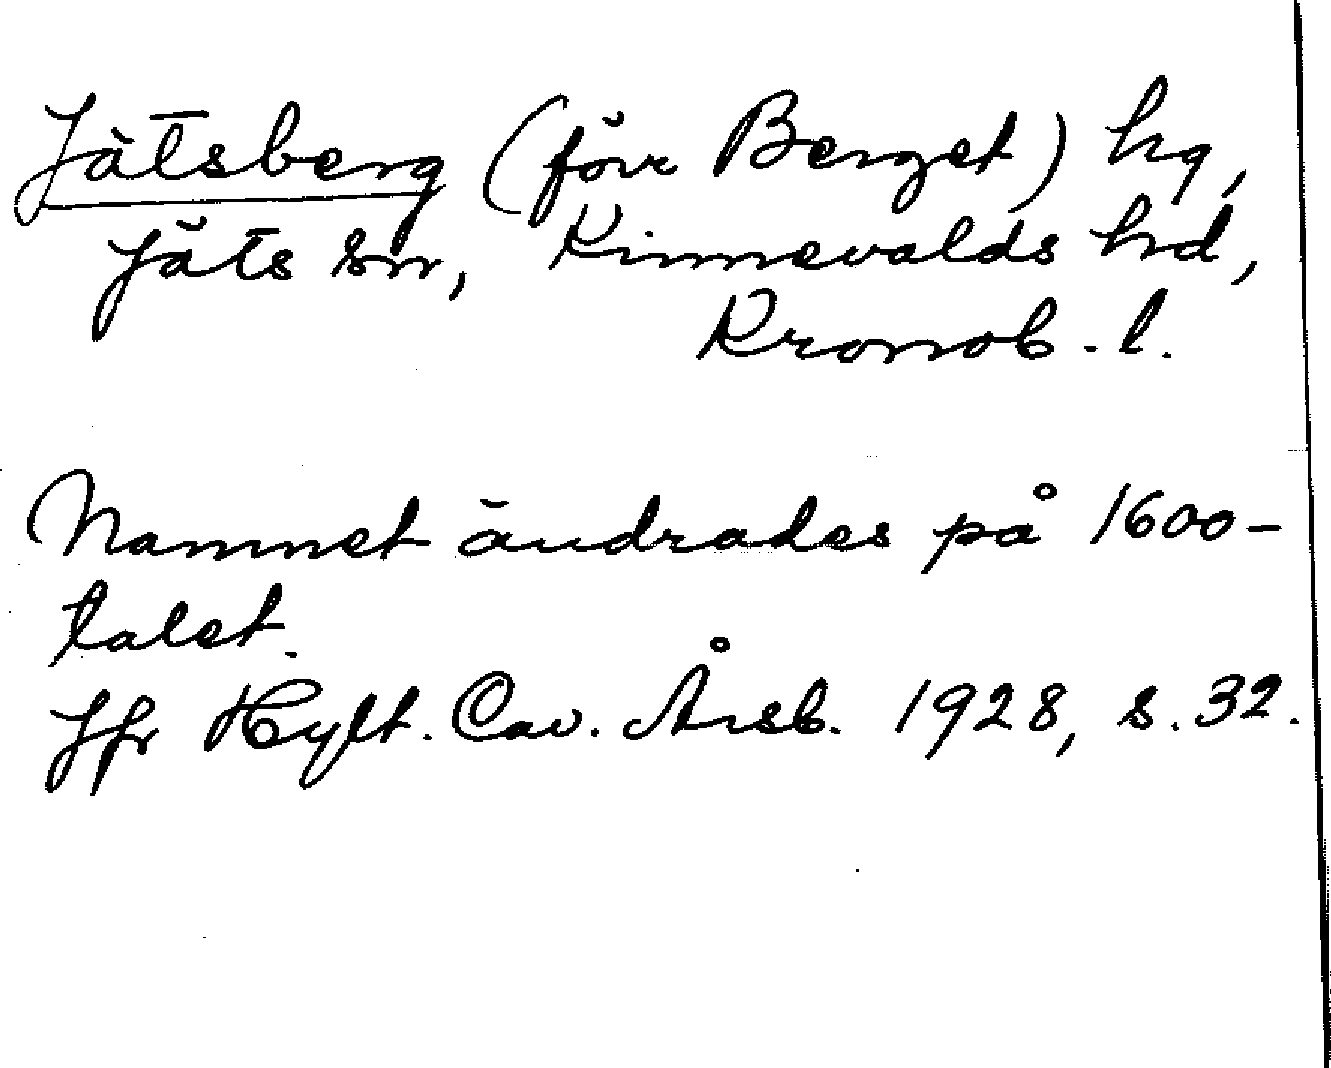 Jätsberg (förr Berget) hg,
Jäts sn, Kinnevalds hd,
Kronob. l.
Namnet ändrades på 1600-
talet.
Jfr Hylt. Cav. Årsb. 1928, s. 32.